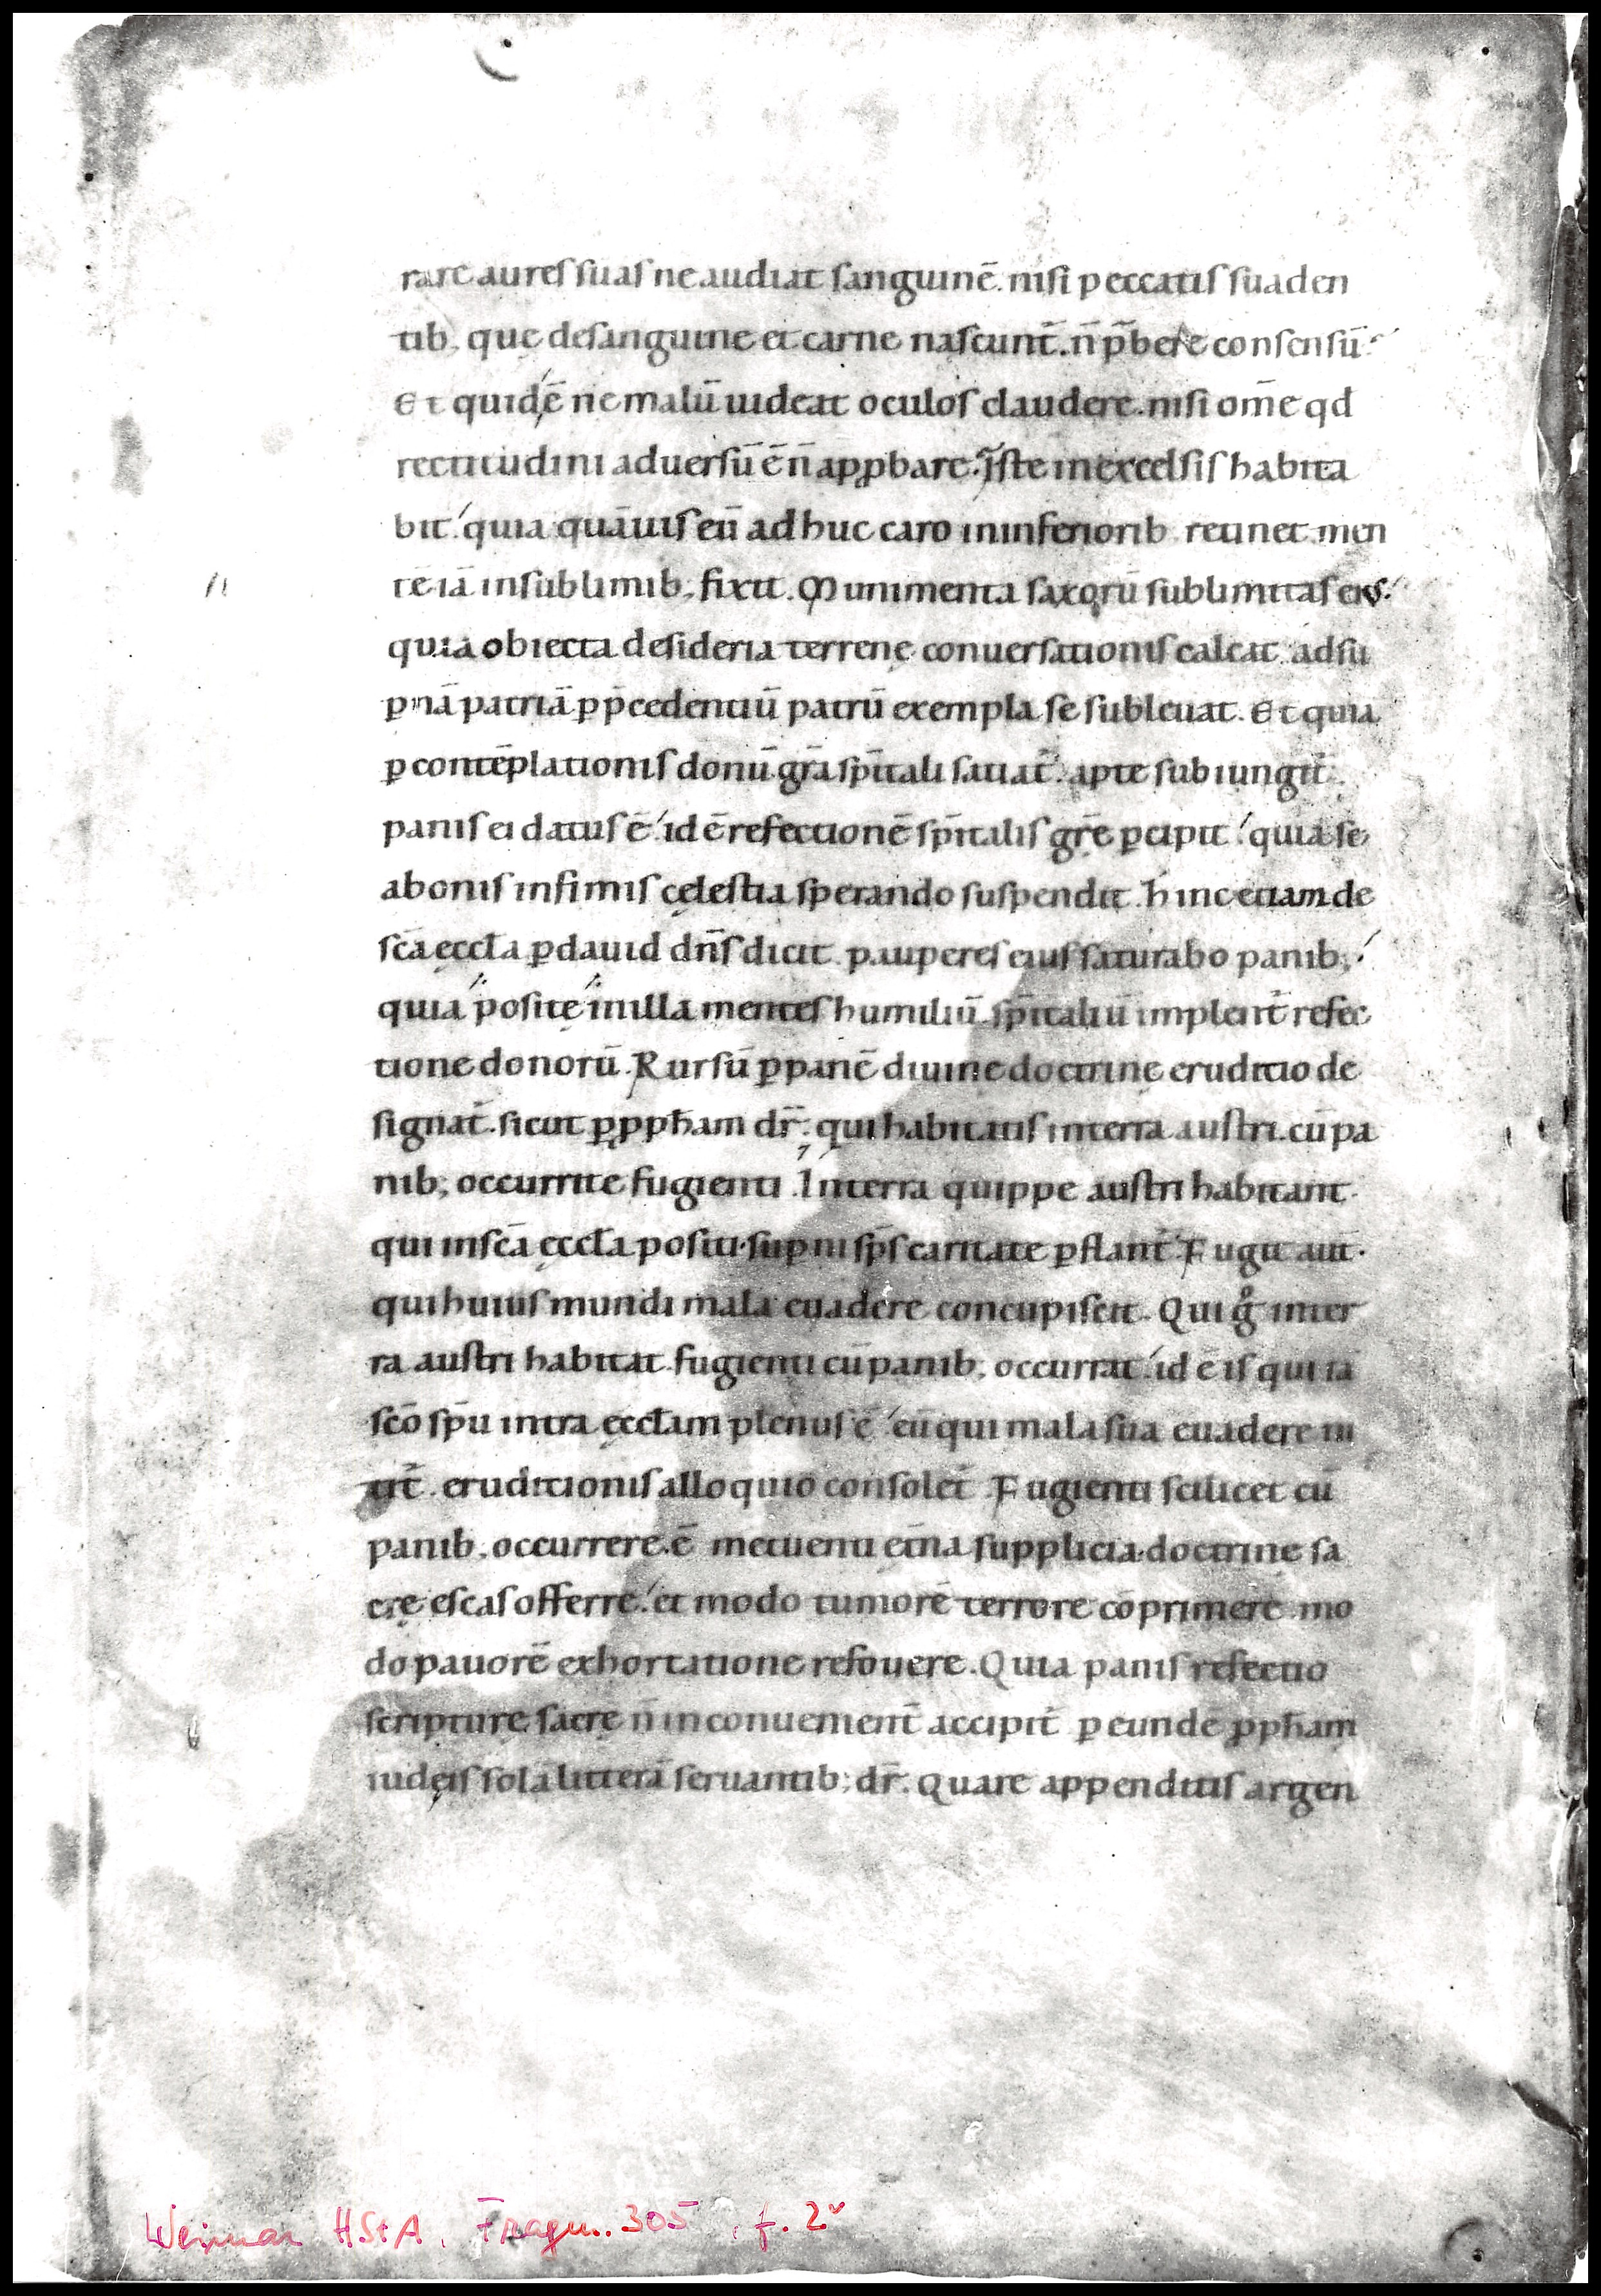 rare aures suas ne audiat sanguinē. nisi peccatis suaden
tib; que desanguine et carne nascunt̄. n̄ p̄bere consensū.
Et quidē ne malū uideat oculos claudere. nisi om̄e qd
rectitudini aduersū ē n̄ apꝓbare. Iste inexcelsis habita
bit. quia quāuis eū adhuc caro ininferiorib; retinet men
tē iā insublimib; fixit. Munimenta saxorū sublimitas eius.
quia obiecta desideria terrenę conuersationis calcat. adsu
ꝑnā patriā ꝑ p̄cedentiū patrū exempla se subleuat. Et quia
ꝑ contēplationis donū gr̄a sp̄itali satiat̄. apte subiungit̄.
panis ei datus ē. id ē refectionē sp̄italis gr̄e ꝑcipit. quia se
abonis infimis cęlestia sperando suspendit. hinc etiam de
sc̄a eccl̄a ꝑ dauid dn̄s dicit. pauperes eius saturabo panib;.
quia positę inilla mentes humiliū. sp̄italiū implent̄ refec
tione donorū. Rursū ꝑ panē diuinę doctrinę eruditio de
signat̄. sicut ꝑ ꝓph̄am dr̄. qui habitatis interra austri. cū pa
nib; occurrite fugienti. Interra quippe austri habitant.
qui insc̄a ęccl̄a positi. suꝑni sp̄s caritate ꝑflant̄. Fugit aut̄.
qui huius mundi mala euadere concupiscit. Qui g̊ inter
ra austri habitat. fugienti cū panib; occurrat. id ē is qui iā
sc̄o sp̄u intra ęccl̄am plenus ē. eū qui mala sua euadere ni
tit̄. eruditionis alloquio consolet̄. Fugienti scilicet cū
panib; occurrere. ē metuenti et̄na supplicia. doctrinę sa
crę escas offerre. et modo tumorē terrore cōprimere. mo
do pauorē exhortatione refouere. Quia panis refectio
scripturę sacrę n̄ inconuenient̄ accipit̄ ꝑ eundē ꝓph̄am
iudęis solā litterā seruantib; dr̄. Quare appenditis argen
Weimar HStA, Fragm. 305, f. 2v